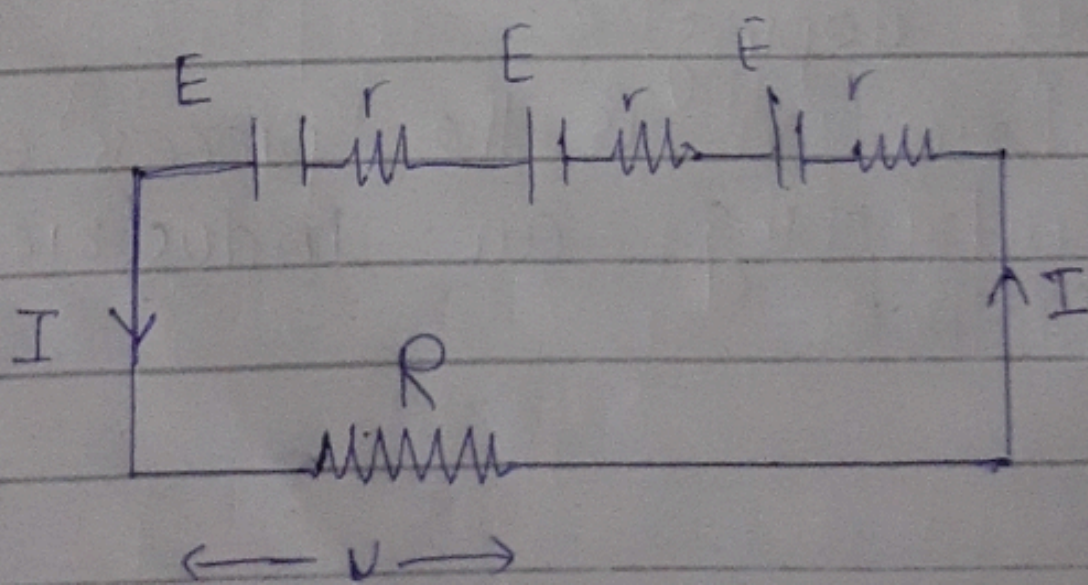 E E E
r r r
I I
R
V